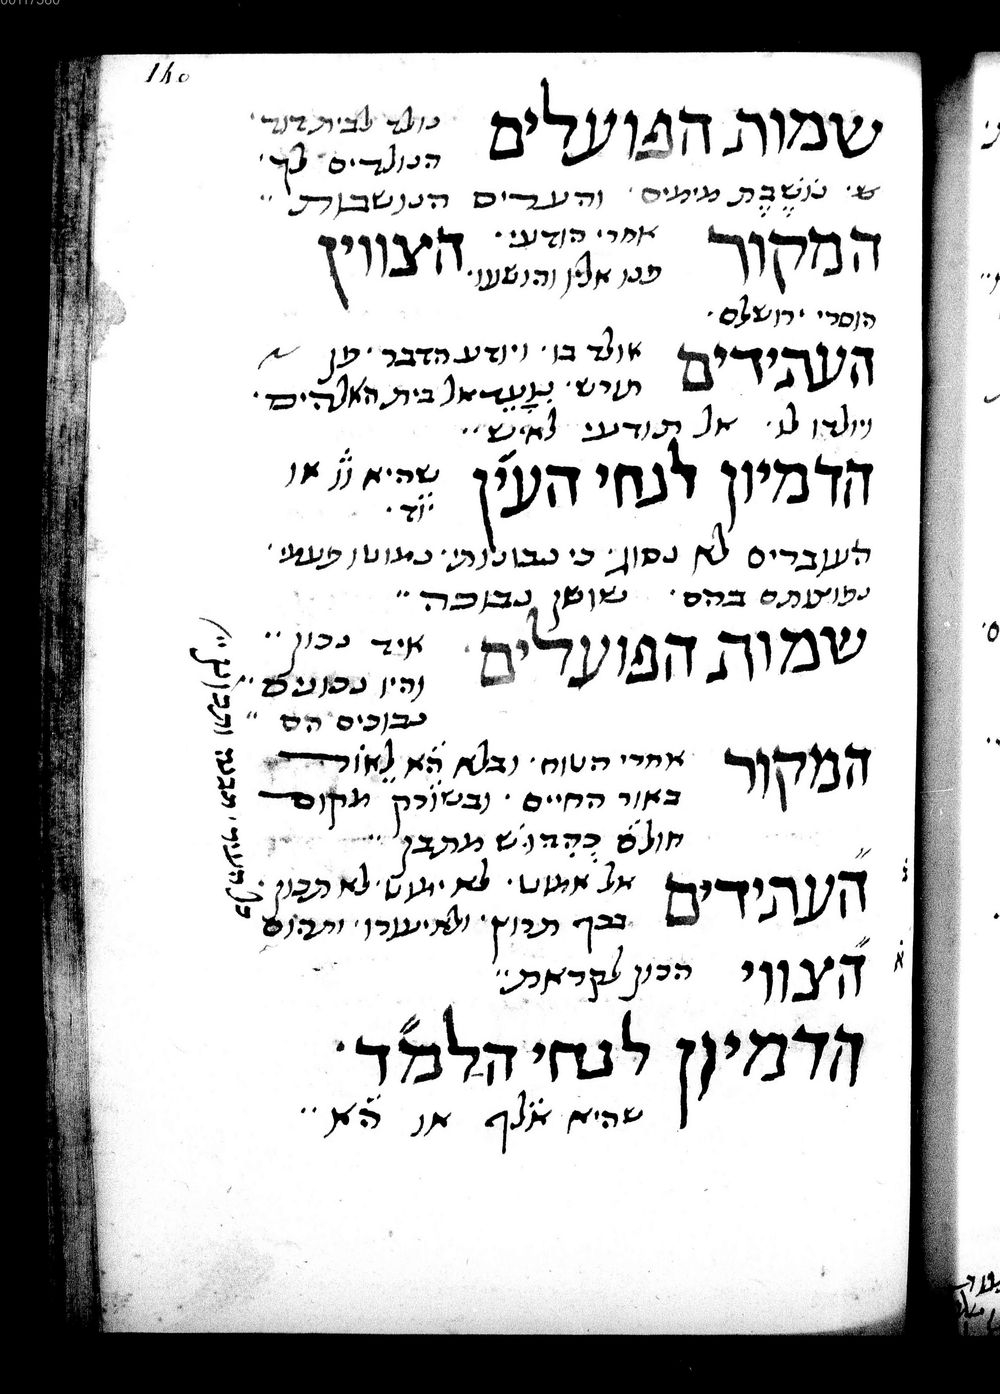 140
שמות הפועלים נולד לבית דוד ·
הנולדים לך ·
ש · נוֹשֶׁבֶת מימים · והערים הנושבות ··
המקור אחרי הודעי · הצווין
פנו אלי והושעו ·
הוסרי ירושלם ·
העתידים אולד בו · ויודע הדבר · פן
תורש · אל בית האלהים ·
ויולדו לו · אל תודעי לאיש ··
הדמיון לנחי העי״ן שהיא וו או
יוד ·
העוברים לא נסוג · כי נבונותי · נמוטו פעמי ·
נפוצתם בהם · שושן נבוכה ··
שמות הפועלים איד נכון ··
והיו נכונים ··
נבוכים הם ··
המקור אחרי הטוח · ובלא הא לֵאוֹר
באור החיים · ובשורק מקום
חולם כְהִדּוּשׁ מתבן ··
העתידים אל אמוט · לא ימוט · לא תכון ·
בכף תרוץ · ולא יעורו · ותהום
הצווי הכון לקראת ··
הדמיון לנחי הלמ״ד ·
שהיא אלף או הא ··